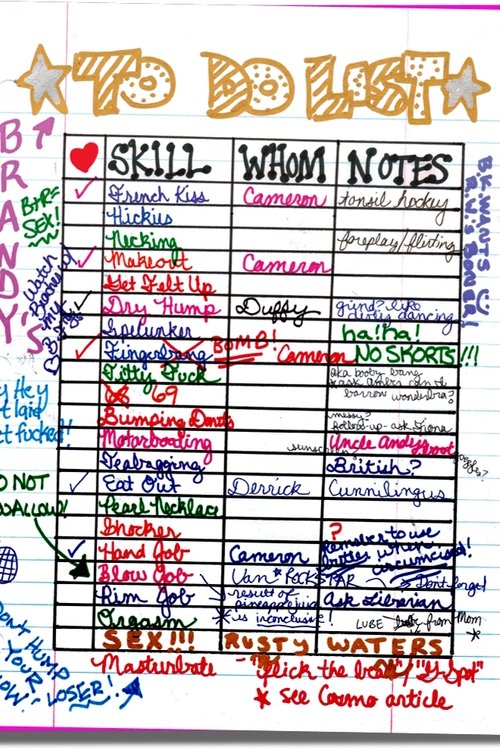 TO DO LIST
BRANDY'S
SKILL WHOM NOTES
French Kiss Cameron tonsil hockey
Hickies
Necking foreplay/flirting
Makeout Cameron
Get Felt Up
Dry Hump Duffy grind? like dirties dancing
Spelunker ha! ha!
Fingerbang BOMB! Cameron NO SKORTS!!!
Titty Fuck aka booby bang
68 69
Bumping Donuts messy? follow-up - ask Fiona
Motorboating Uncle Andy
Teabagging British?
Eat Out Derrick Cunnilingus
Pearl Necklace
Shocker ?
Hand Job Cameron remember to use
circumcised!
Blow Job Van * ROCKSTAR Don't forget
Rim Job result of pineapple juice Ask Librarian
Orgasm * is inconclusive! LUBE from Mom *
SEX!!! RUSTY WATERS
Masturbate "flick the bean" / "G-Spot"
* See Cosmo article
B+R=
SEX!
Watch
my
Hey
laid
fucked!
DO NOT
SWALLOW!
DON'T HUMP
YOUR
LOSER!
B.K. WANTS
R.W.'s BONER!